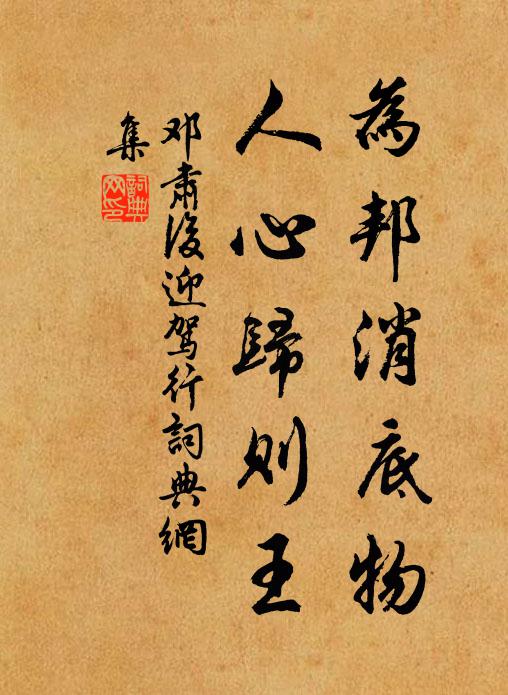 為邦消底物
人心歸則王
邓肅後迎駕行詞典網
集
詞典
网印